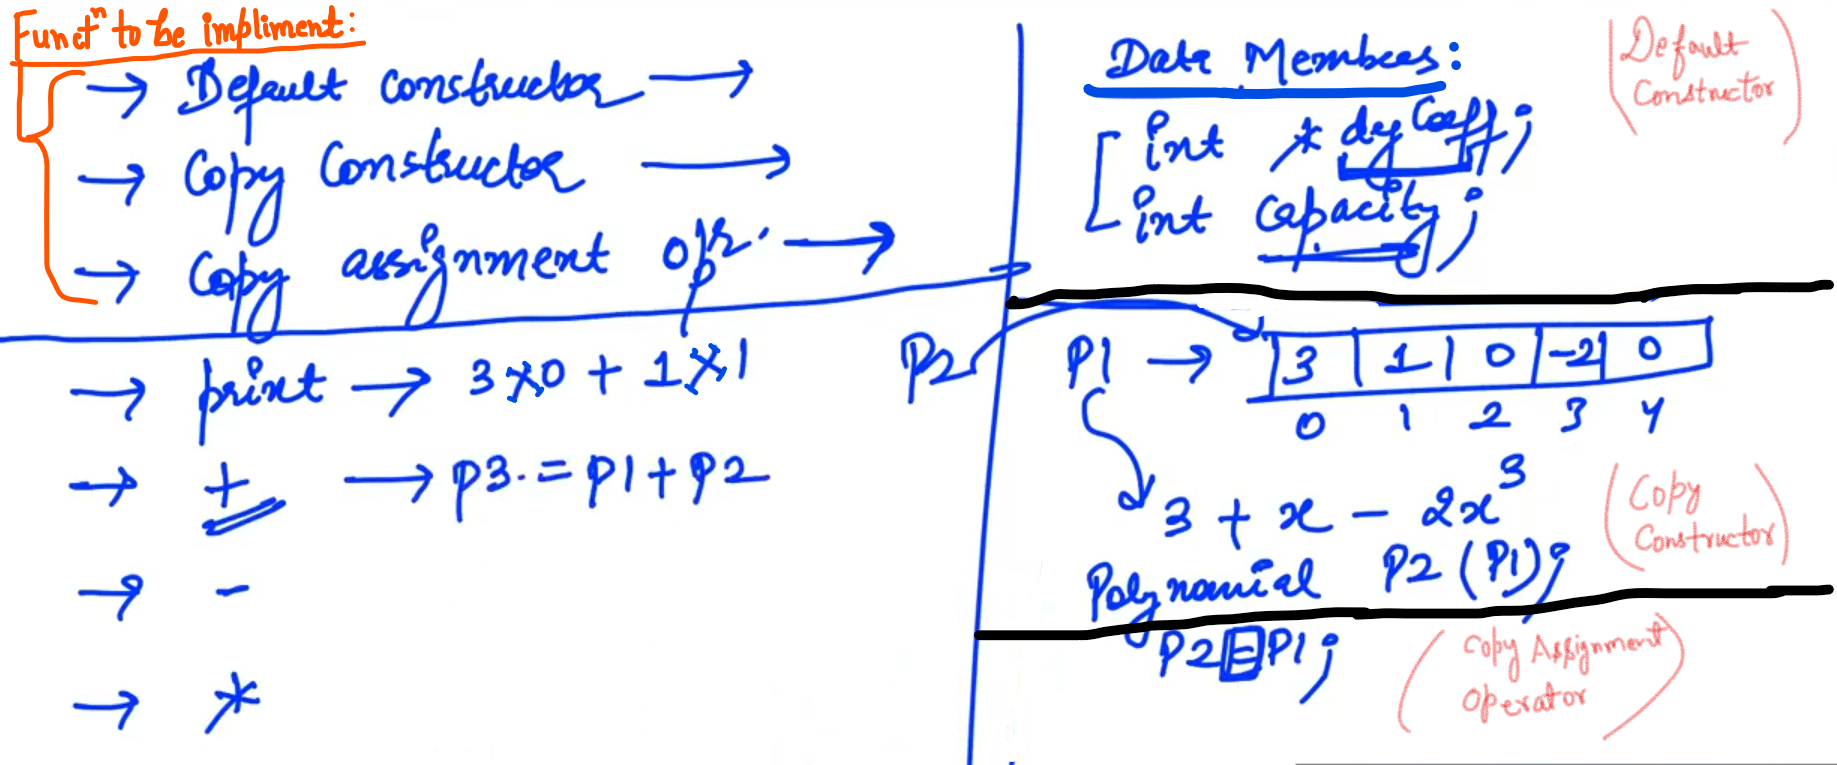 Functⁿ to be impliment:
→ Default constructor →
→ Copy Constructor →
→ Copy assignment opr. →
→ print → 3x0 + 1x1
→ + → P3. = P1 + P2
→ -
→ *
Data Members:
int * dyCoeff;
int capacity;
(Default
Constructor)
P2
P1 → 3 1 0 -2 0
0 1 2 3 4
3 + x - 2x³
Polynomial P2 (P1);
(Copy
Constructor)
P2 = P1;
(Copy Assignment
Operator)